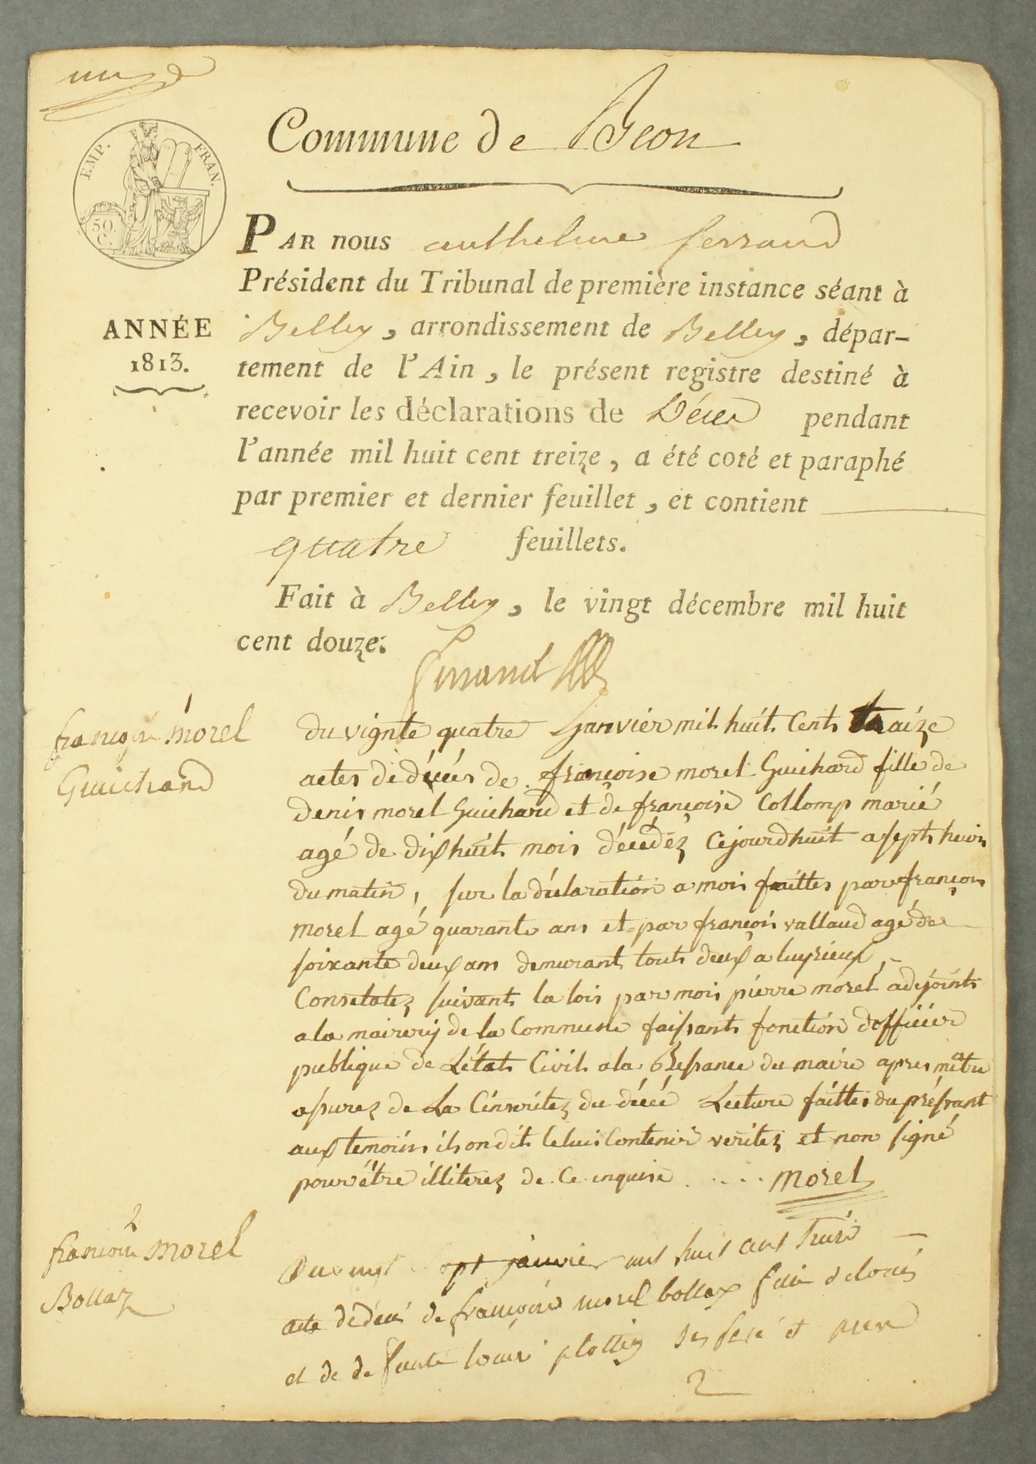 un
EMP. FRAN.
50
C
Commune de Béon
ANNÉE
1813.
PAR nous anthelme ferrand
Président du Tribunal de première instance séant à
Belley, arrondissement de Belley, dépar-
tement de l'Ain, le présent registre destiné à
recevoir les déclarations de Décès pendant
l'année mil huit cent treize, a été coté et paraphé
par premier et dernier feuillet, et contient
quatre feuillets.
Fait à Belley, le vingt décembre mil huit
cent douze.
ferrand
1
françoise morel
Guichard
du vignte quatre janvier mil huit Cents traize
actes de décés de françoise morel Guichard fille de
denis morel Guichard et de françoise Collomp marié
agé de dixhuit mois décédéz Cejourdhuit a sept heures
du matin, sur la déclaration a mois faittes par françois
morel agé quarante ans et par françois vallaud agé de
soixante deux ans demurant touts deux a luyrieux,
Constatez suivant la lois par mois pierre morel adejoints
a la mairerÿ de la Commune faisants fonction dofficier
publique de Létats Civils a la du maire apres matre
asurez de La du décé Lecture faittes du présant
aux temoins ils on dit Celui Contenir veritez et non signé
pour être illiterez de Ce enquise ..... morel
2
françoise morel
Bollaz
janvier mil huit cent treize
acte de décés de françoise morel bollax fille de
et de de funte plottier ses pere et mere
2